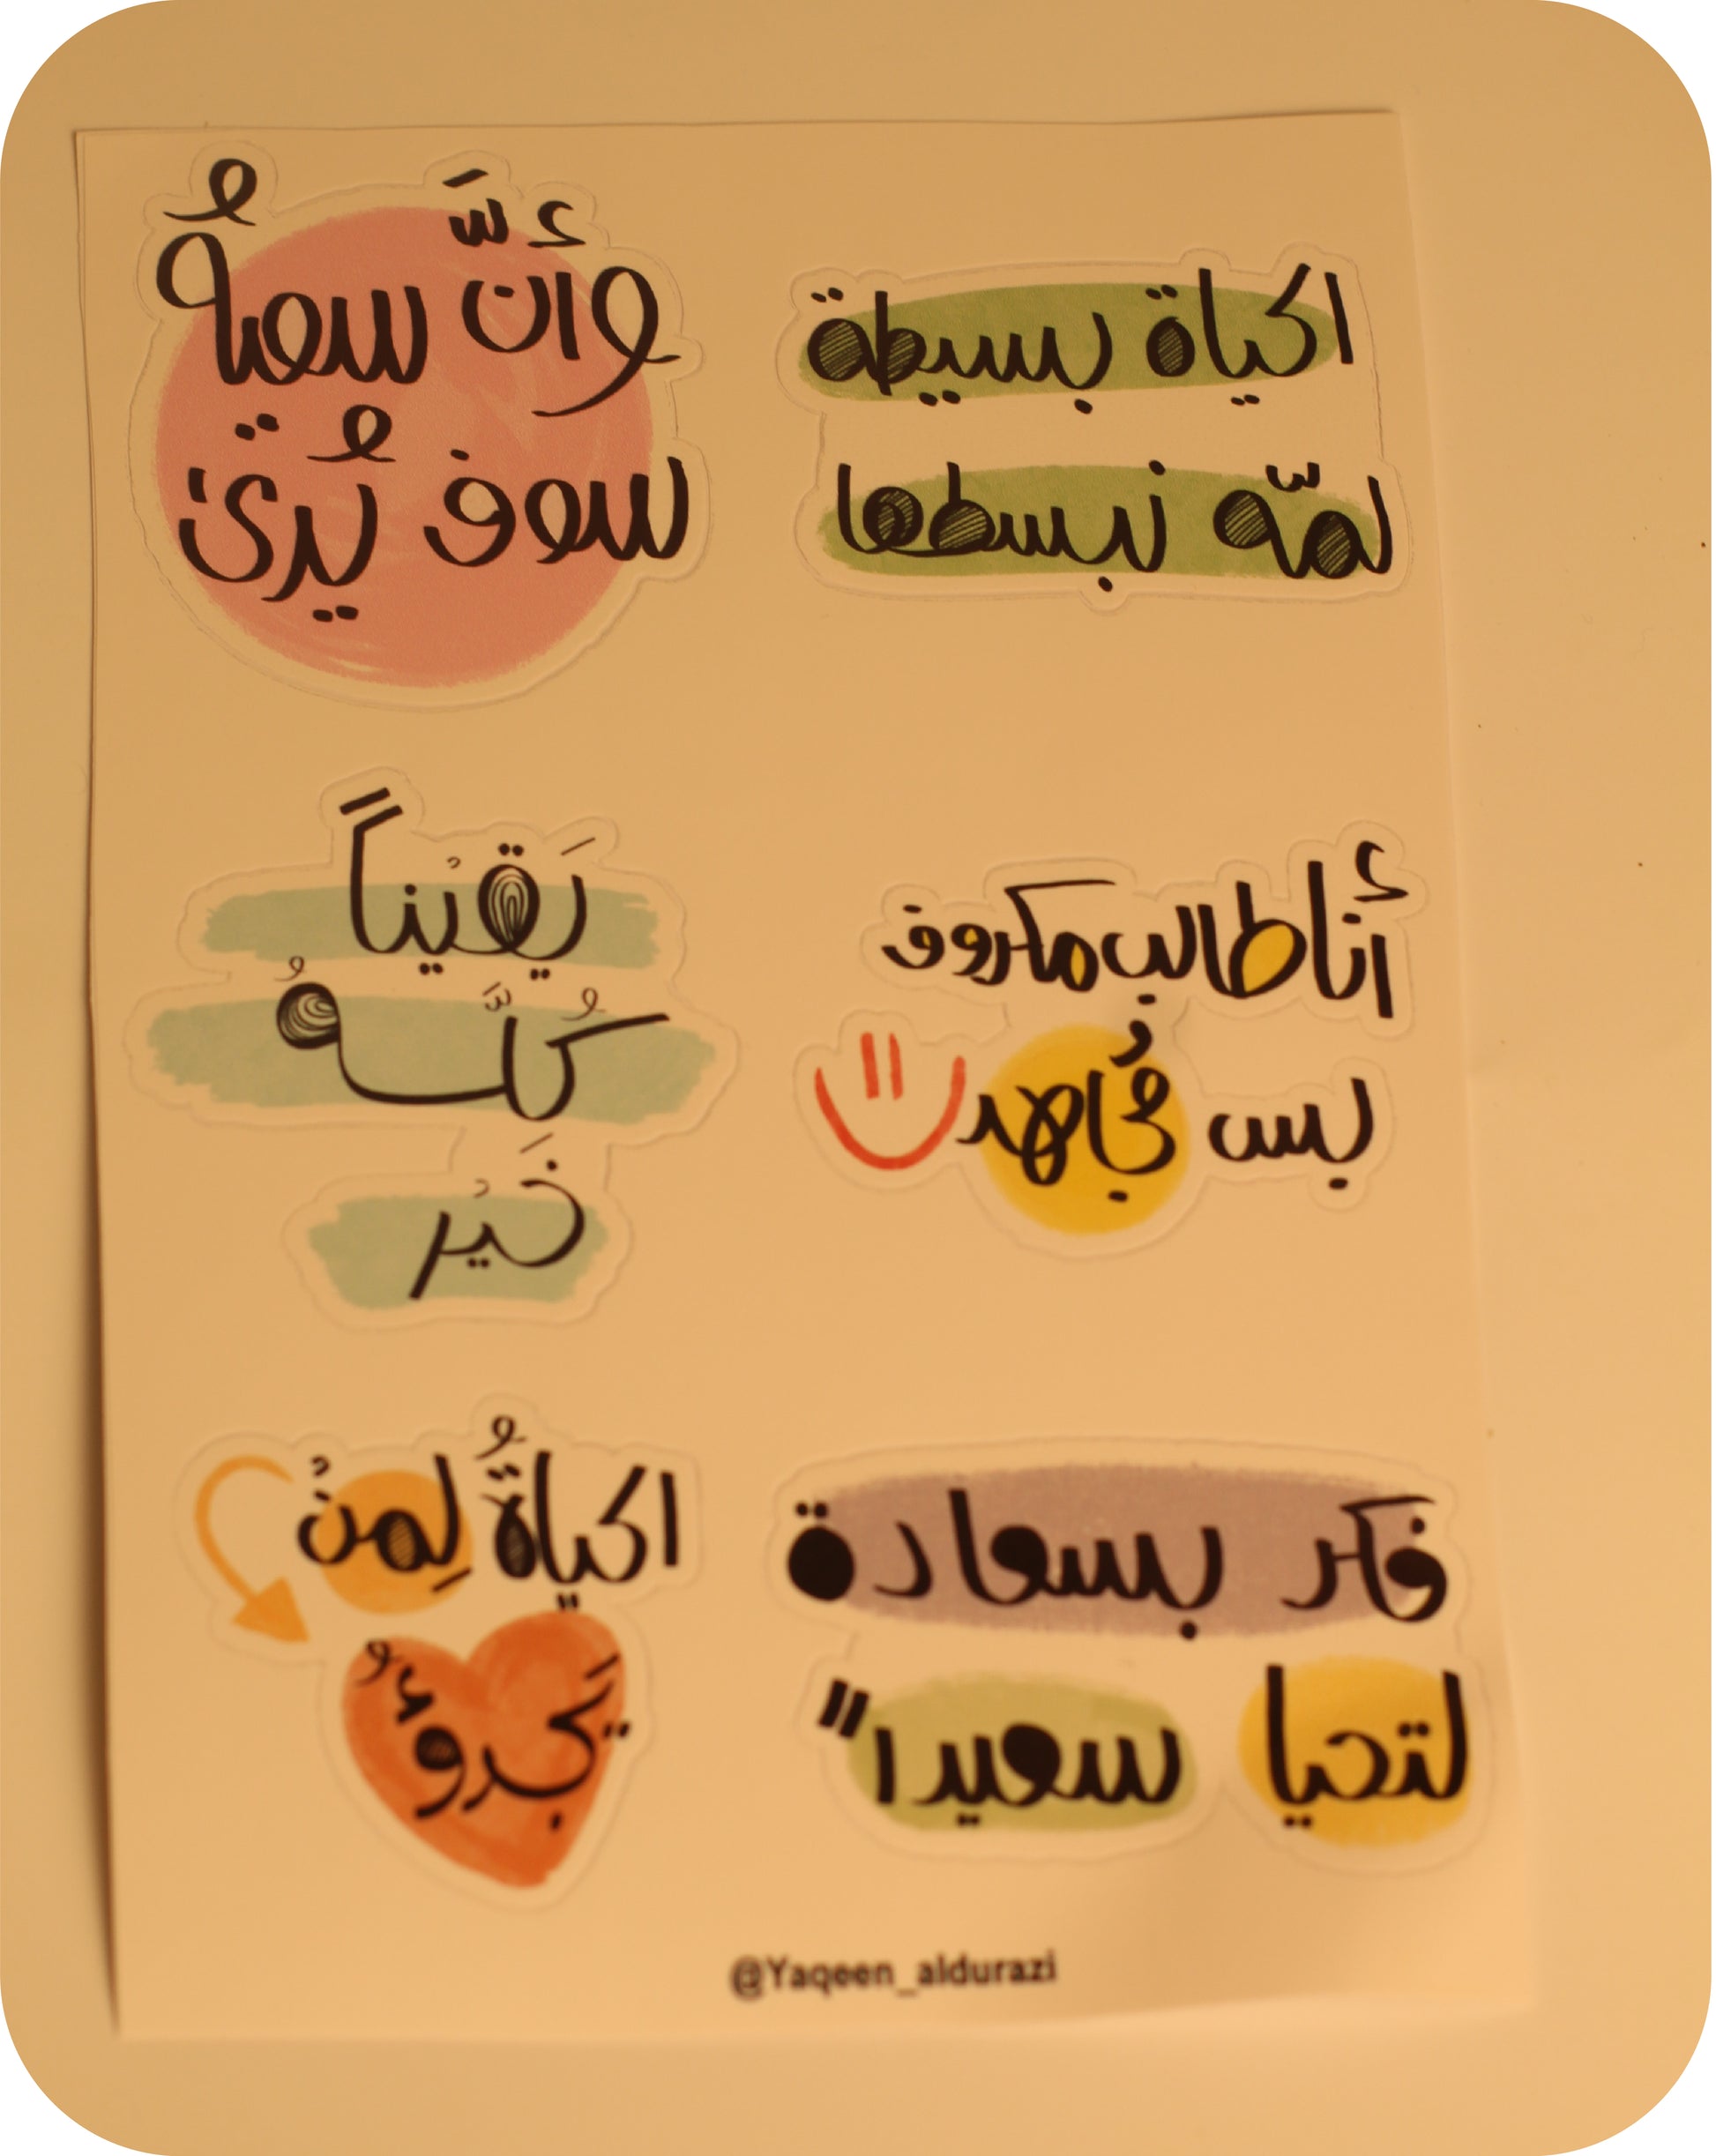 الحياة بسيطة
لمّه نبسطها
وأنّ سعيهُ
سوف يُرى
أنا طالب مكروف
بس مُجاهد
يَقيْناً
كُلّهُ
خَيْر
فكر بسعادة
لتحيا سعيداً
الحياةُ لِمنْ
يَجرؤُ
@Yaqeen_aldurazi